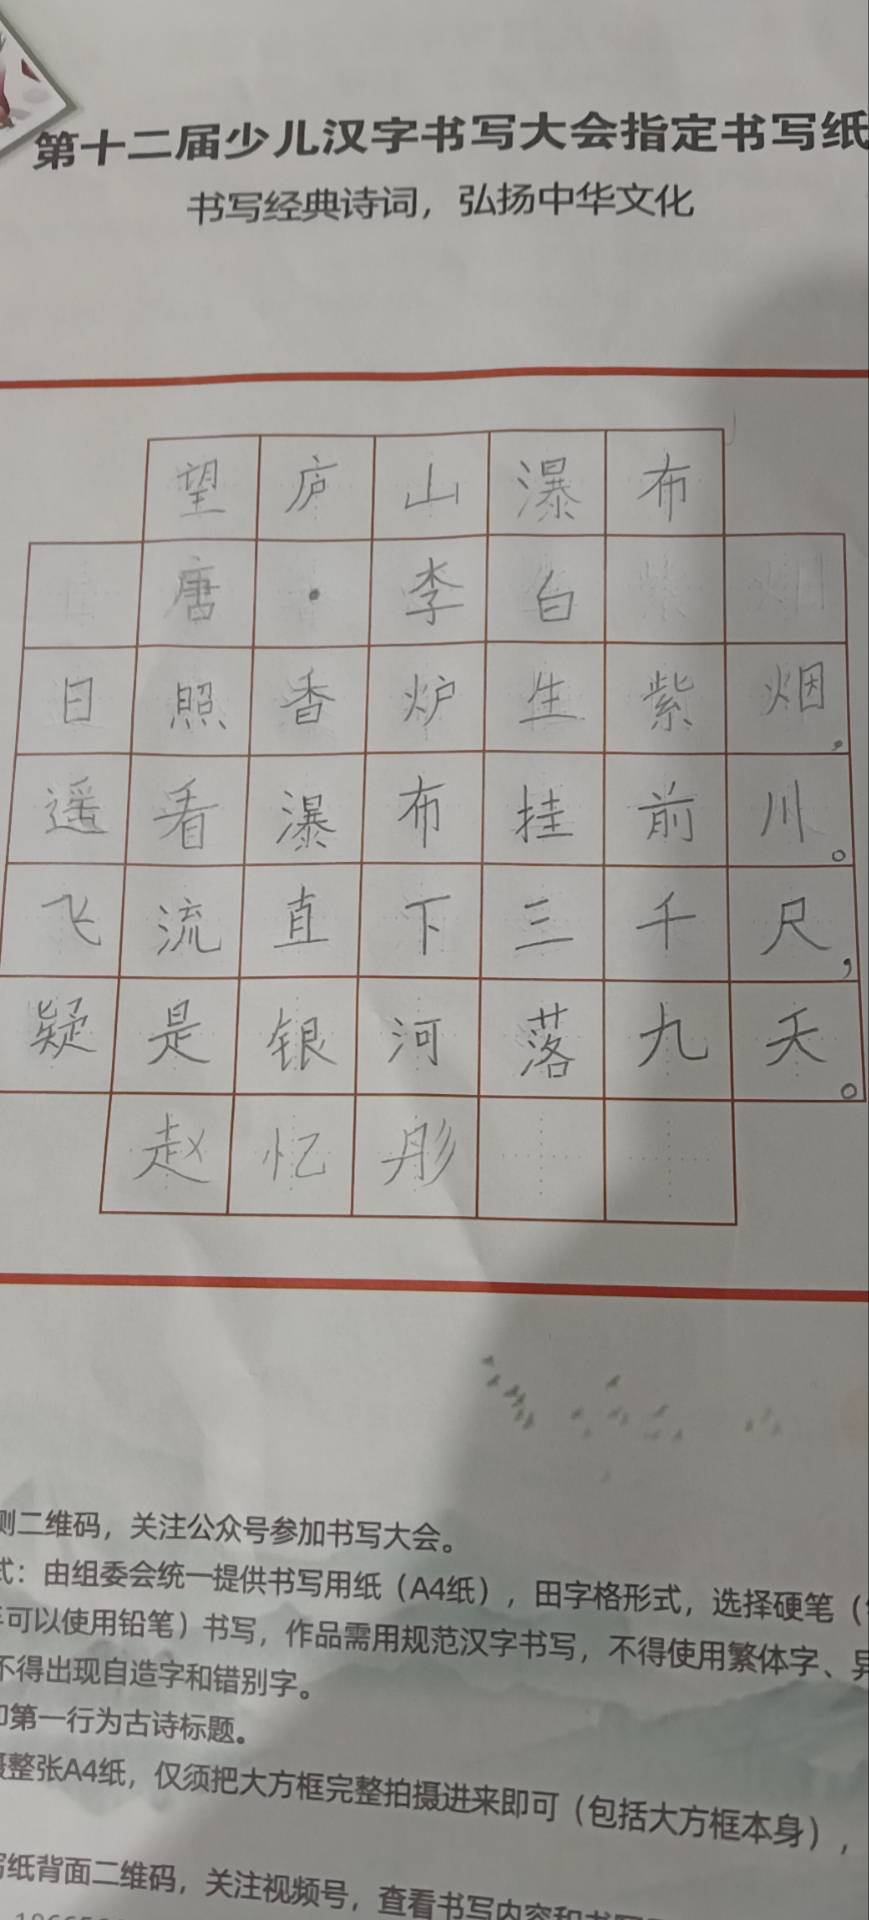 第十二届少儿汉字书写大会指定书写纸
书写经典诗词，弘扬中华文化
望庐山瀑布
唐·李白
日照香炉生紫烟，
遥看瀑布挂前川。
飞流直下三千尺，
疑是银河落九天。
赵忆彤
测二维码，关注公众号参加书写大会。
式：由组委会统一提供书写用纸（A4纸），田字格形式，选择硬笔（
可以使用铅笔）书写，作品需用规范汉字书写，不得使用繁体字、异
不得出现自造字和错别字。
第一行为古诗标题。
整张A4纸，仅须把大方框完整拍摄进来即可（包括大方框本身），
写纸背面二维码，关注视频号，查看书写内容和书写